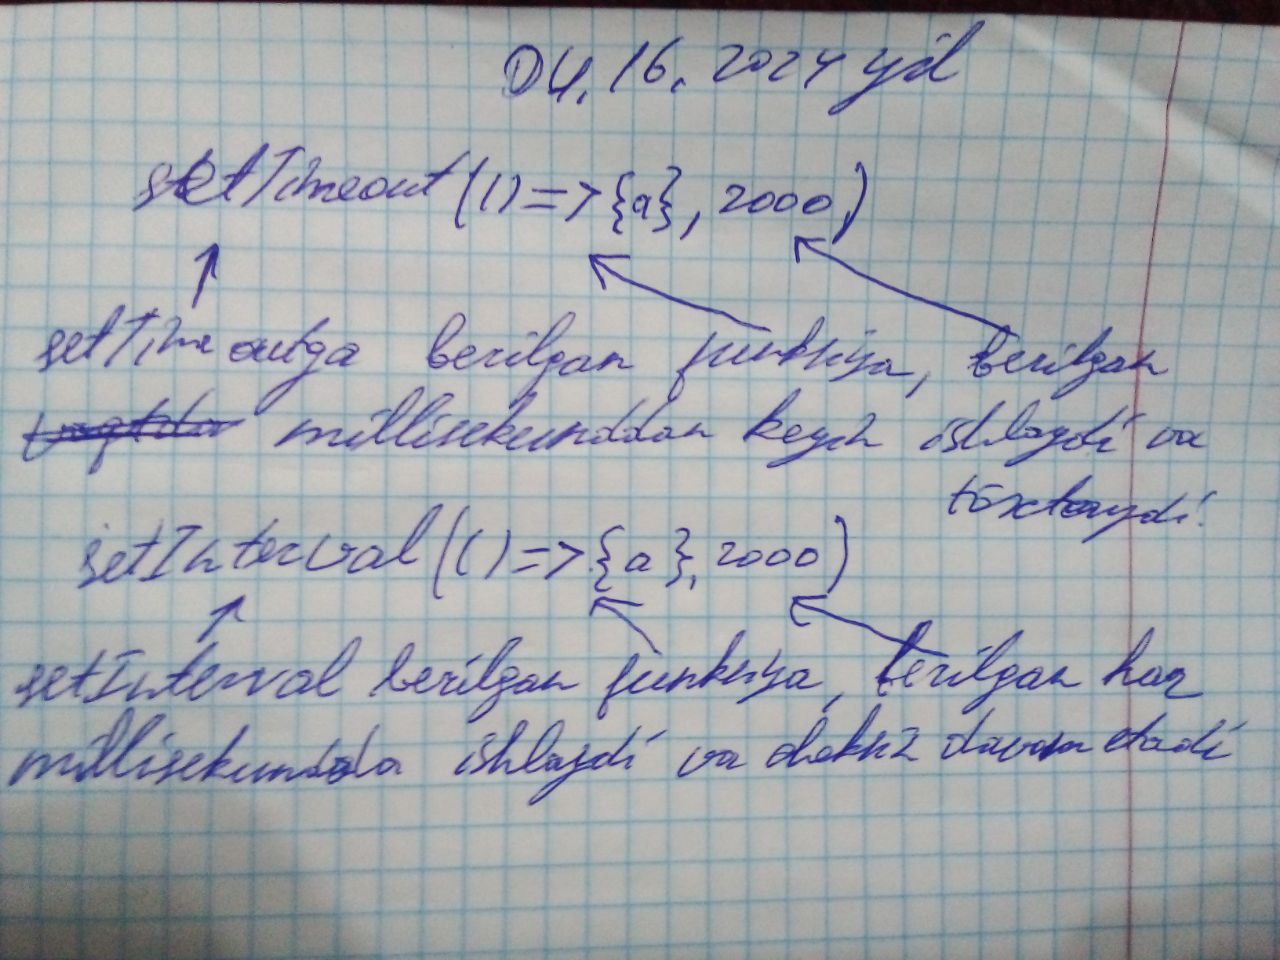 04.16.2024 yil
setTimeout(()=>{a}, 2000)
setTimeoutga berilgan funksiya, berilgan
millisekunddan keyin ishlaydi va
to'xtaydi.
setInterval(()=>{a}, 2000)
setInterval berilgan funksiya, berilgan har
millisekundda ishlaydi va davom etadi